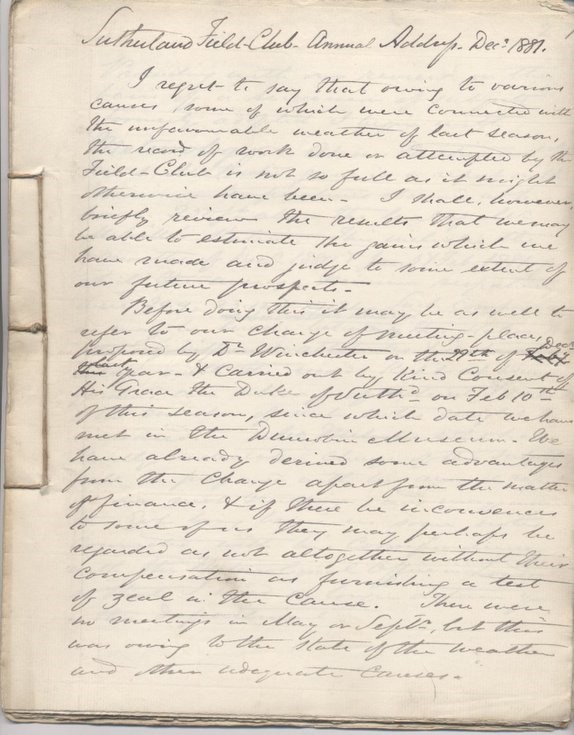 Sutherland Field-Club - Annual Address - Decr. 1881.
I regret to say that owing to various
causes, some of which were connected with
the unfavourable weather of last season,
the record of work done or attempted by the
Field-Club is not so full as it might
otherwise have been. I shall, however,
briefly review the results that we may
be able to estimate the gains which we
have made and judge to some extent of
our future prospects.
Before doing this it may be as well to
refer to our change of meeting-place,
proposed by Dr. Winchester on the of Decr.
last year - & carried out by kind Consent of
His Grace the Duke of Suthd. on Feb 10th
of this season, since which date we have
met in the Dunrobin Museum. We
have already derived some advantages
from the change apart from the matter
of finance, & if there be inconveniences
to some of us they may perhaps be
regarded as not altogether without their
compensation as furnishing a test
of zeal in the cause. There were
no meetings in May or Septr., but this
was owing to the state of the weather
and other adequate causes.